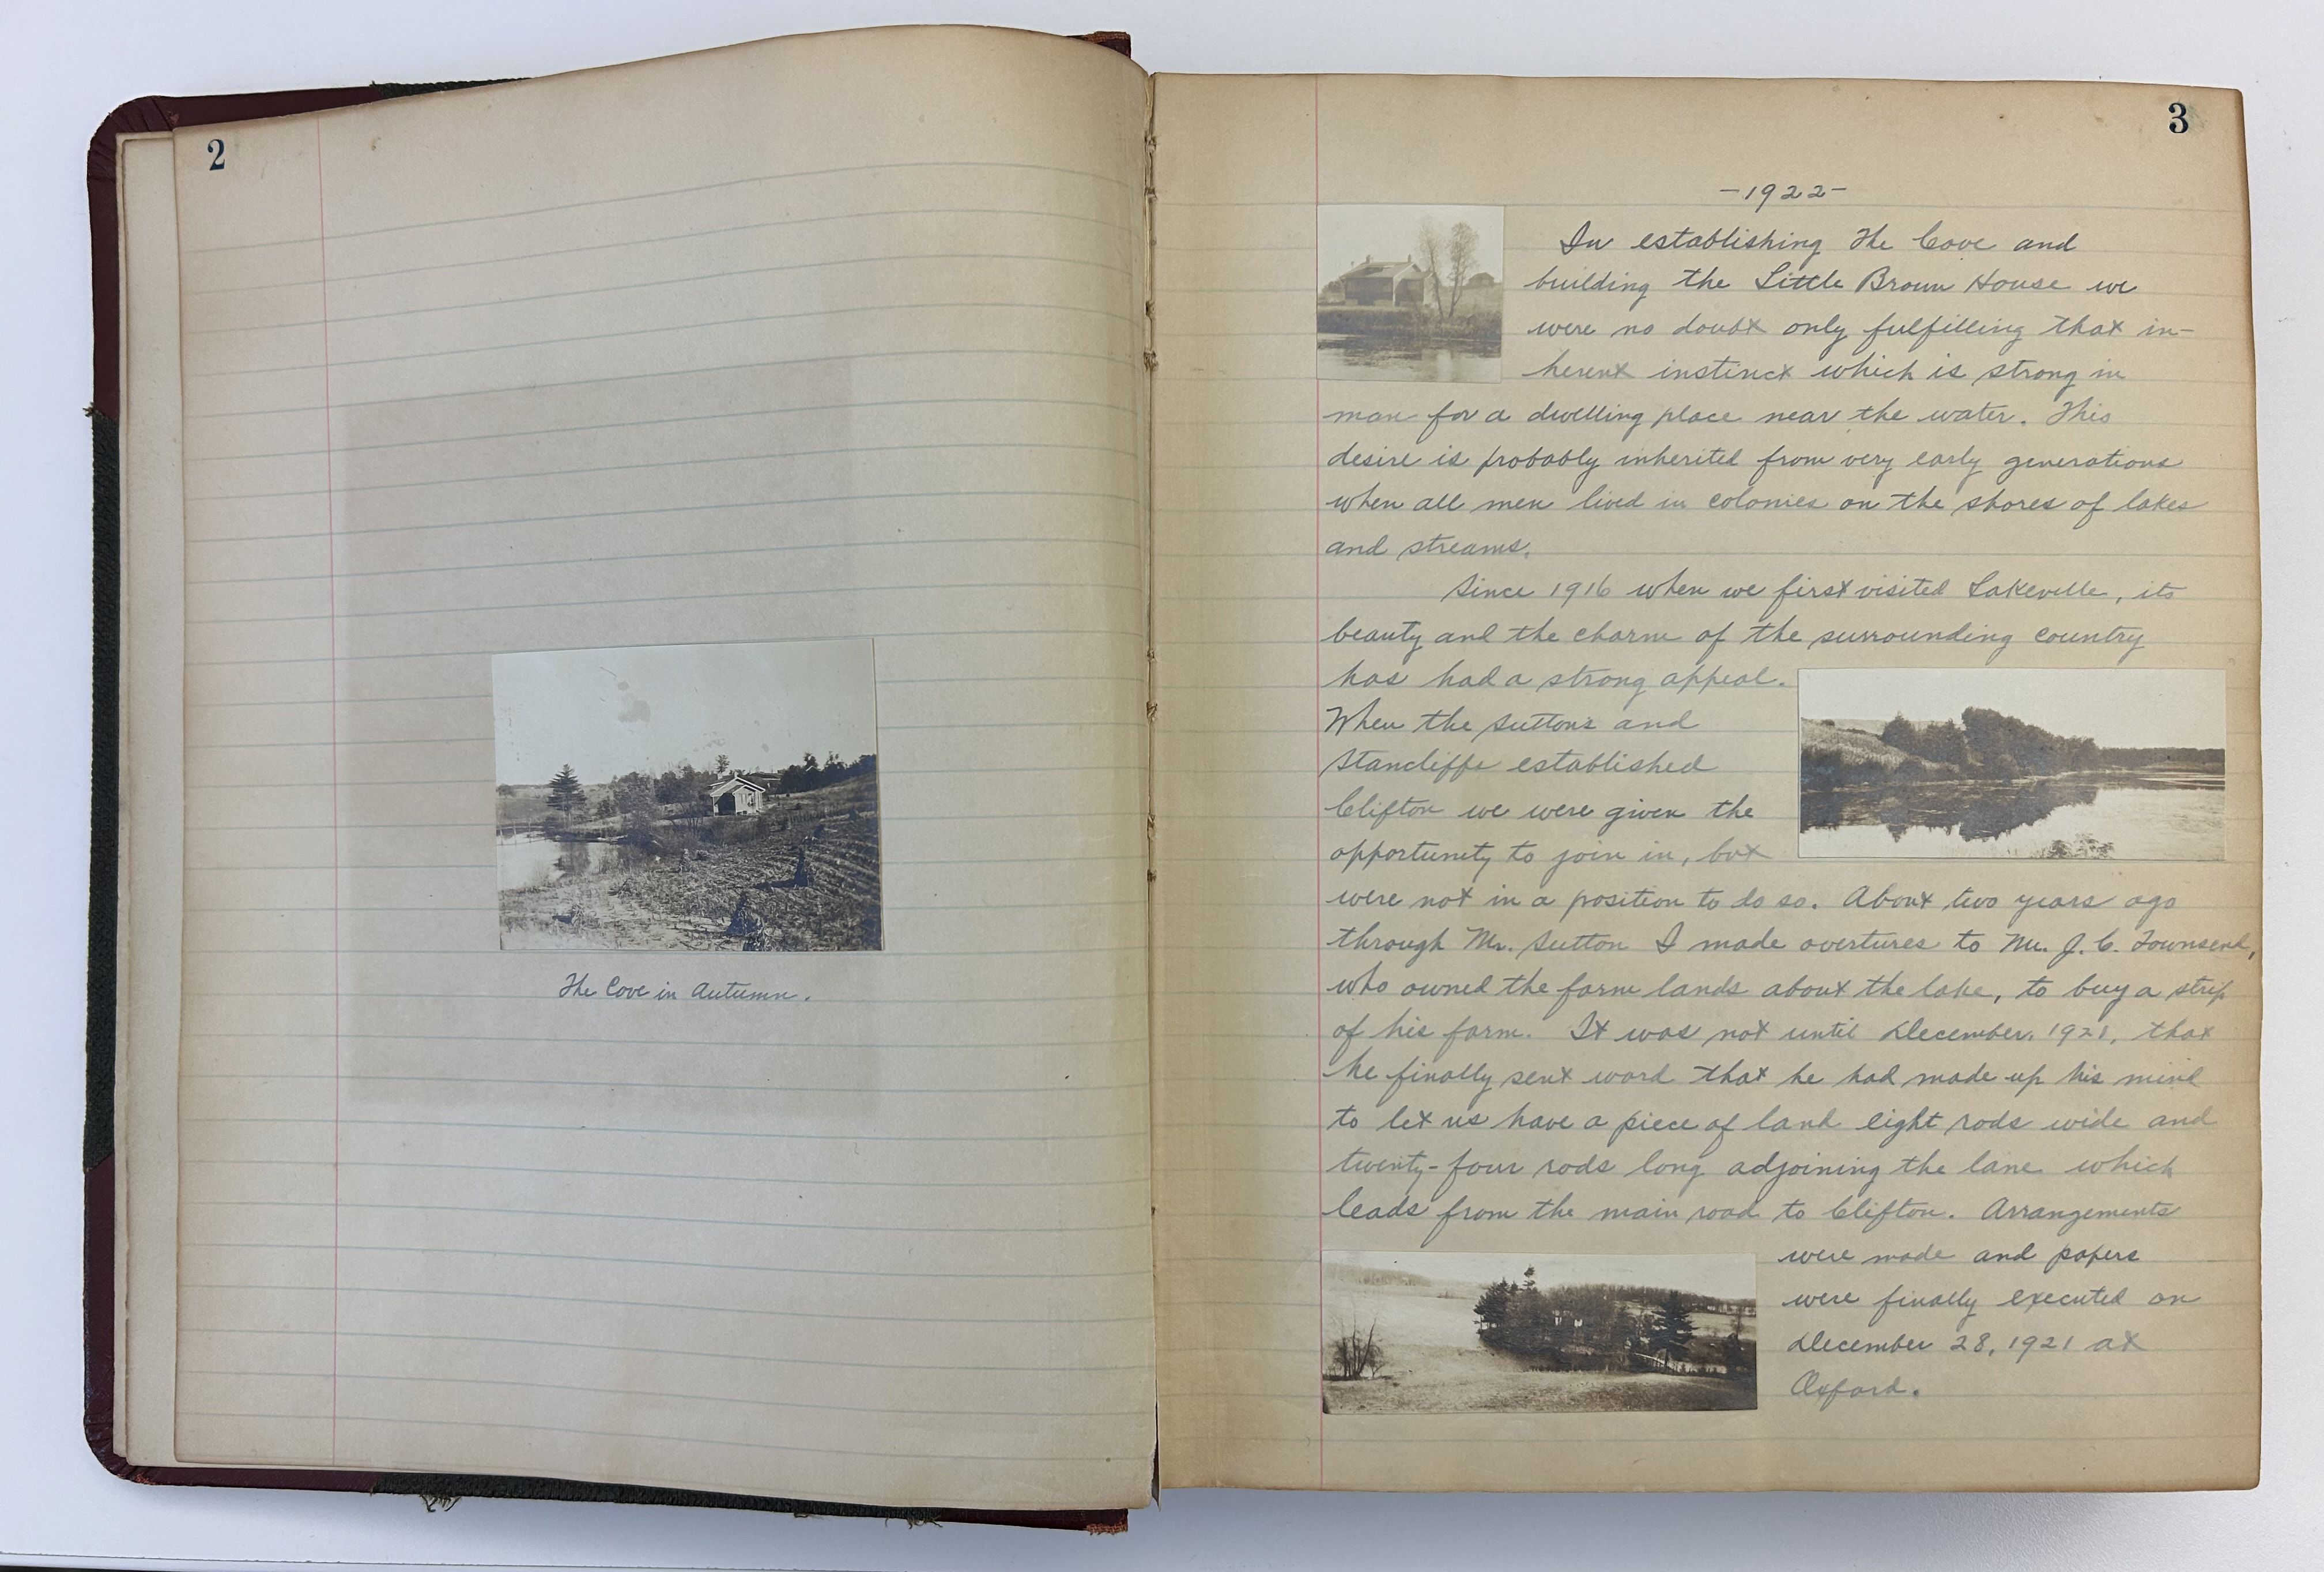 2
The Cove in Autumn.
3
-1922-
In establishing The Cove and
building the Little Brown House we
were no doubt only fulfilling that in-
herent instinct which is strong in
man for a dwelling place near the water. This
desire is probably inherited from very early generations
when all men lived in colonies on the shores of lakes
and streams.
Since 1916 when we first visited Lakeville, its
beauty and the charm of the surrounding country
has had a strong appeal.
When the Suttons and
Stancliffe established
Clifton we were given the
opportunity to join in, but
were not in a position to do so. About two years ago
through Mr. Sutton I made overtures to Mr. J. C. Townsend,
who owned the farm lands about the lake, to buy a strip
of his farm. It was not until December, 1921, that
he finally sent word that he had made up his mind
to let us have a piece of land eight rods wide and
twenty-four rods long adjoining the lane which
leads from the main road to Clifton. Arrangements
were made and papers
were finally executed on
December 28, 1921 at
Oxford.